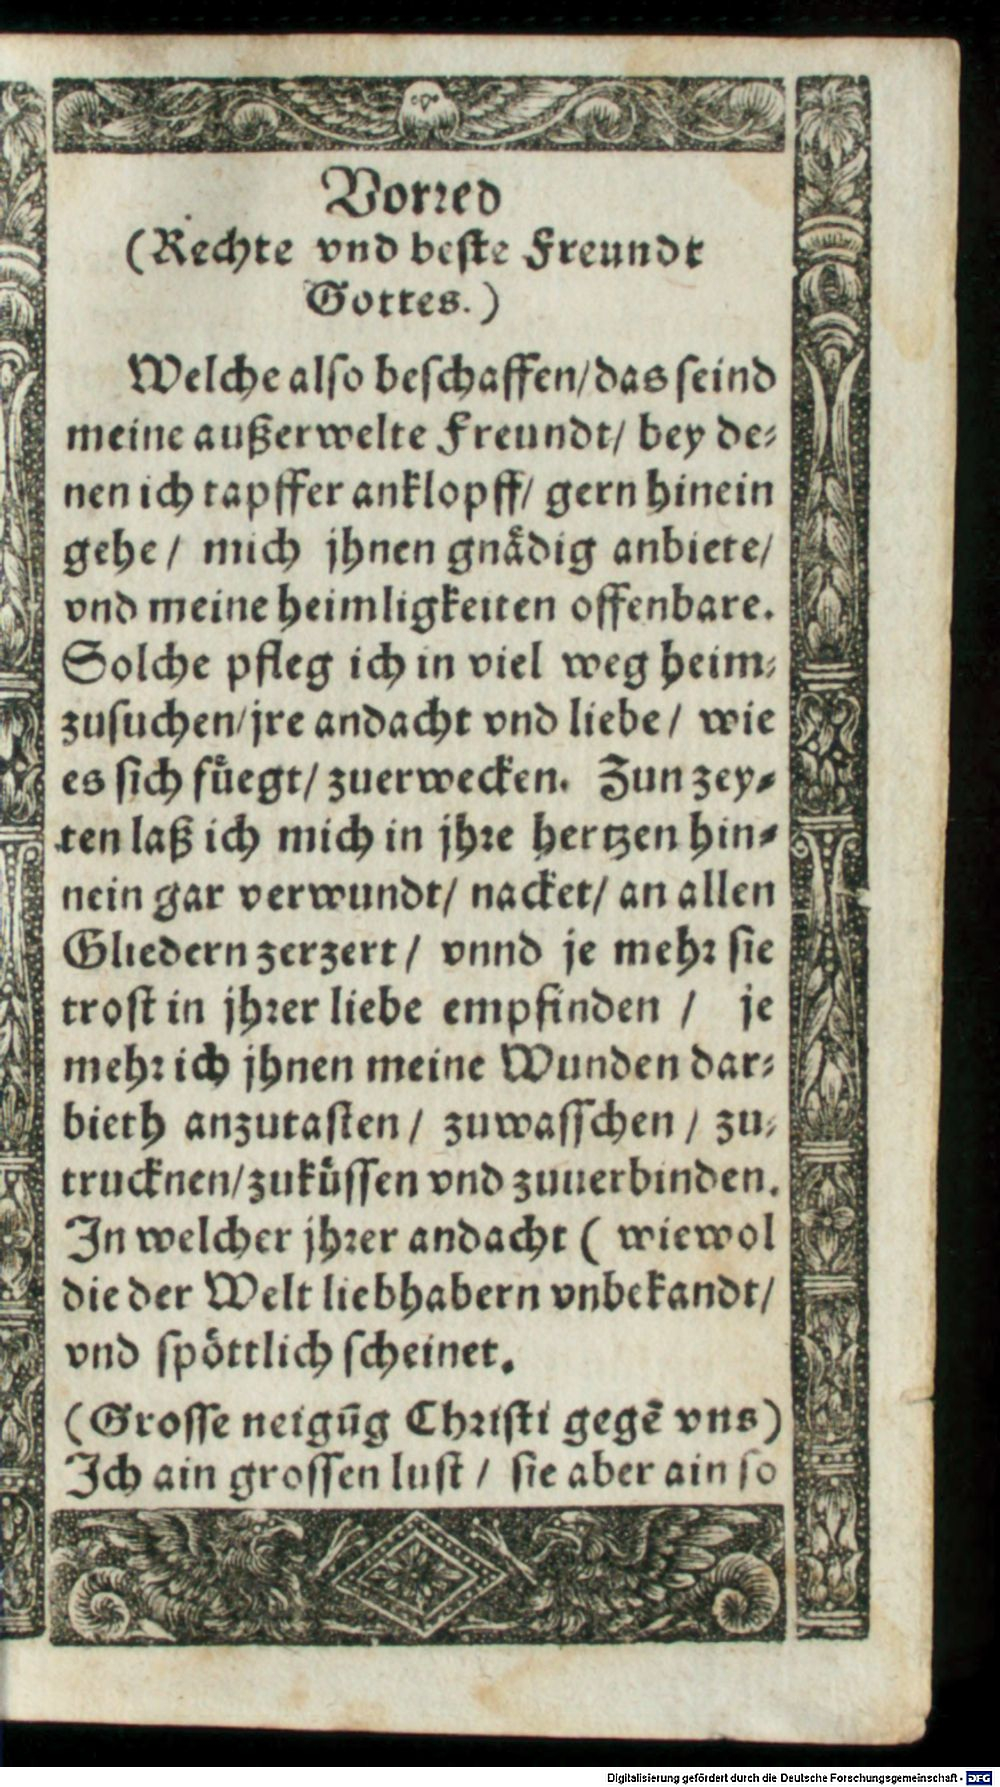 Vorred
(Rechte vnd beste Freundt
Gottes.)
Welche also beschaffen/das seind
meine außerwelte Freundt/ bey de-
nen ich tapffer anklopff/ gern hinein
gehe/ mich jhnen gnådig anbiete/
vnd meine heimligkeiten offenbare.
Solche pfleg ich in viel weg heim-
zusuchen/jre andacht vnd liebe/ wie
es sich fůegt/ zuerwecken. Zun zey-
ten laß ich mich in jhre hertzen hin-
nein gar verwundt/ nacket/ an allen
Gliedern zerzert/ vnnd je mehr sie
trost in jhrer liebe empfinden / je
mehr ich jhnen meine Wunden dar-
bieth anzutasten/ zuwasschen/ zu-
trucknen/zukůssen vnd zuuerbinden.
In welcher jhrer andacht ( wiewol
die der Welt liebhabern vnbekandt/
vnd spöttlich scheinet.
(Grosse neigūg Christi gegē vns)
Ich ain grossen lust/ sie aber ain so
Digitalisierung gefördert durch die Deutsche Forschungsgemeinschaft - DFG